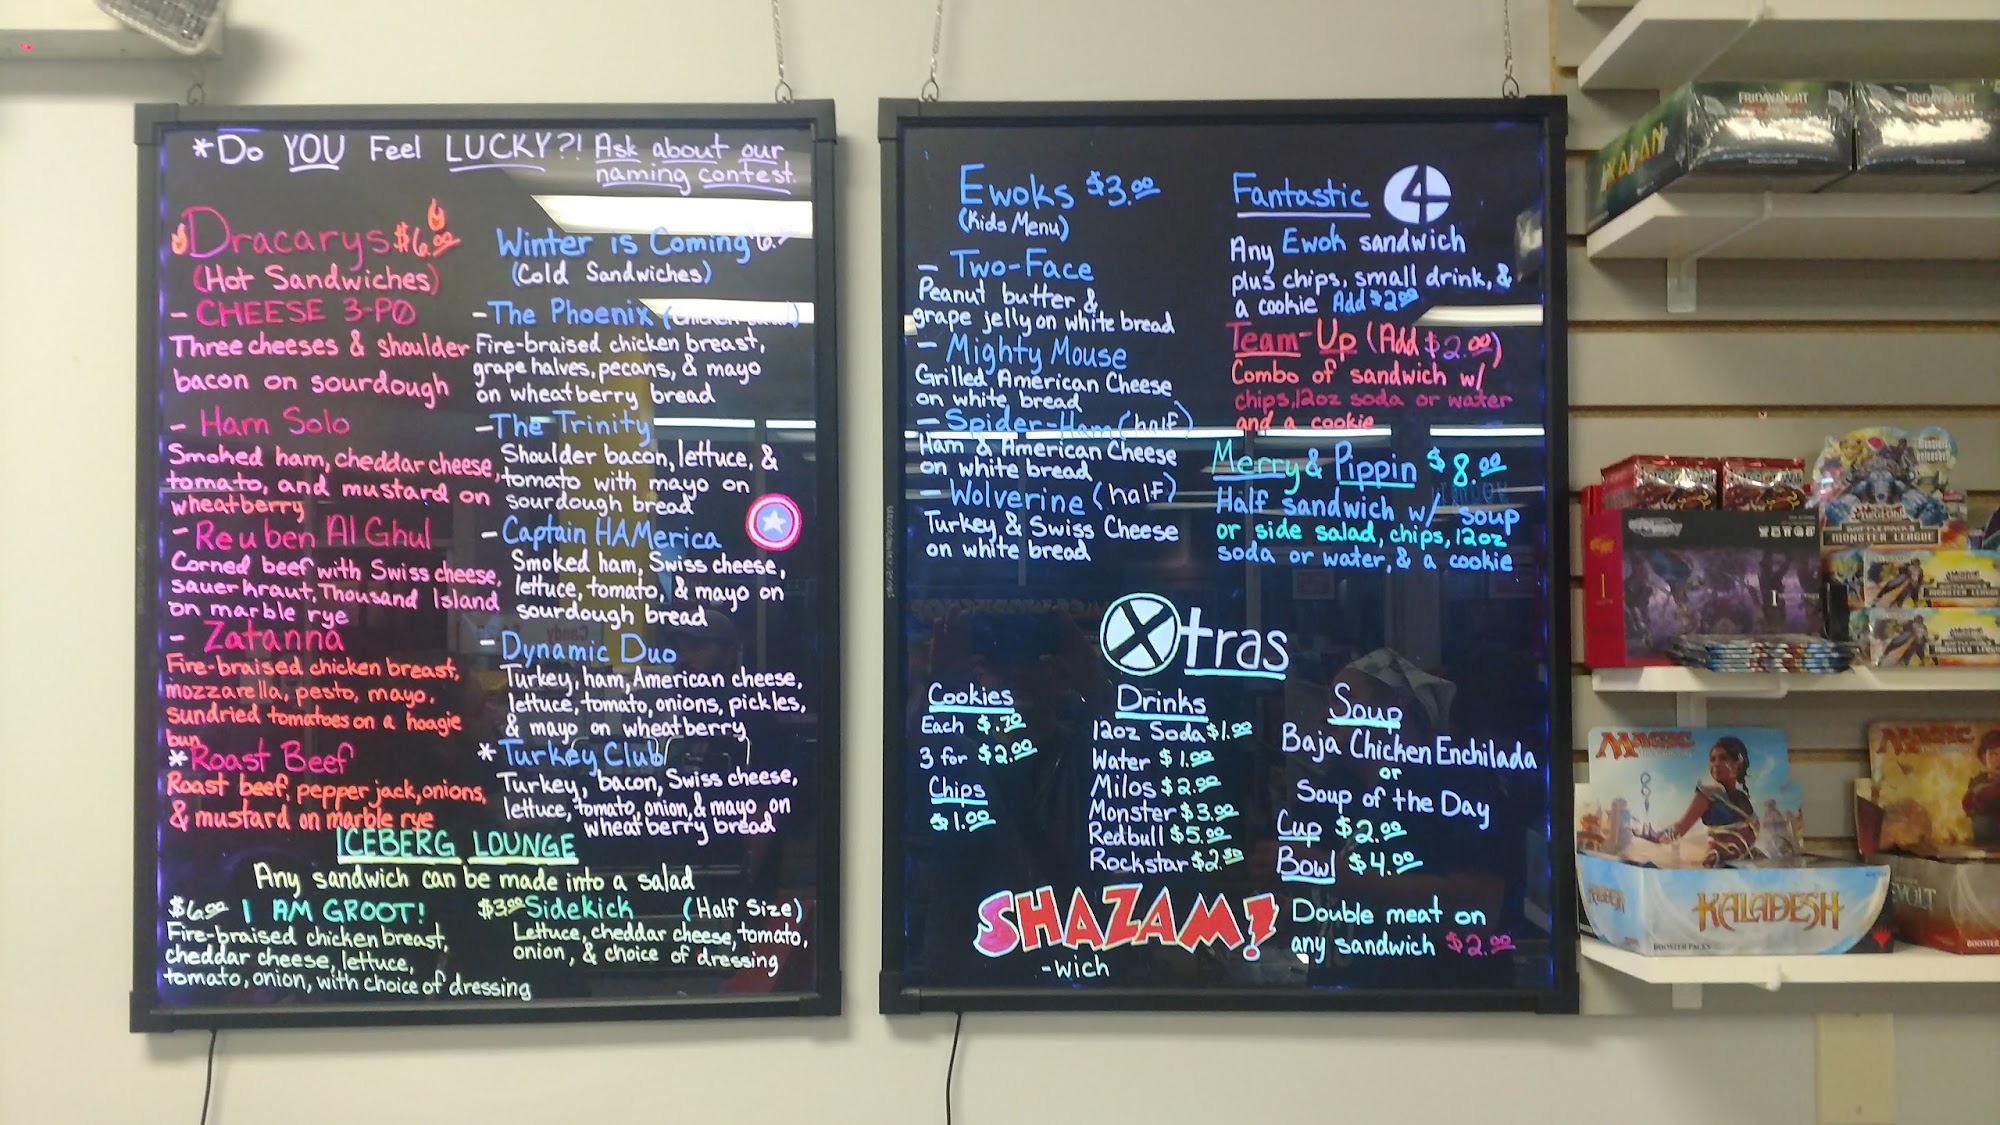 *Do YOU Feel LUCKY?! Ask about our
naming contest.
Dracarys $6.00
(Hot Sandwiches)
- CHEESE 3-PO
Three cheeses & shoulder
bacon on sourdough
- Ham Solo
Smoked ham, cheddar cheese,
tomato, and mustard on
wheatberry
- Reuben Al Ghul
Corned beef with Swiss cheese,
sauerkraut, Thousand Island
on marble rye
- Zatanna
Fire-braised chicken breast,
mozzarella, pesto, mayo,
sundried tomatoes on a hoagie
bun
*Roast Beef
Roast beef, pepper jack, onions,
& mustard on marble rye
Winter is Coming $6.00
(Cold Sandwiches)
- The Phoenix (chicken salad)
Fire-braised chicken breast,
grape halves, pecans, & mayo
on wheatberry bread
- The Trinity
Shoulder bacon, lettuce, &
tomato with mayo on
sourdough bread
- Captain HAMerica
Smoked ham, Swiss cheese,
lettuce, tomato, & mayo on
sourdough bread
- Dynamic Duo
Turkey, ham, American cheese,
lettuce, tomato, onions, pickles,
& mayo on wheatberry
* Turkey Club
Turkey, bacon, Swiss cheese,
lettuce, tomato, onion, & mayo on
wheatberry bread
ICEBERG LOUNGE
Any sandwich can be made into a salad
$6.00 I AM GROOT!
Fire-braised chicken breast,
cheddar cheese, lettuce,
tomato, onion, with choice of dressing
$3.00 Sidekick (Half Size)
Lettuce, cheddar cheese, tomato,
onion, & choice of dressing
Ewoks $3.00
(Kids Menu)
- Two-Face
Peanut butter &
grape jelly on white bread
- Mighty Mouse
Grilled American Cheese
on white bread
- Spider-Ham (half)
Ham & American Cheese
on white bread
- Wolverine (half)
Turkey & Swiss Cheese
on white bread
Fantastic 4
Any Ewok sandwich
plus chips, small drink, &
a cookie Add $2.00
Team-Up (Add $2.00)
Combo of sandwich w/
chips, 12oz soda or water
and a cookie
Merry & Pippin $8.00
Half sandwich w/ soup
or side salad, chips, 12oz
soda or water, & a cookie
Xtras
Cookies
Each $.70
3 for $2.00
Chips
$1.00
Drinks
12oz Soda $1.00
Water $1.00
Milos $2.00
Monster $3.00
Redbull $5.00
Rockstar $2.50
Soup
Baja Chicken Enchilada
or
Soup of the Day
Cup $2.00
Bowl $4.00
SHAZAM!
-wich
Double meat on
any sandwich $2.00
IXALAN
FRIDAY NIGHT
FRIDAY NIGHT
MONSTER LEAGUE
MONSTER LEAGUE
MAGIC
KALADESH
BOOSTER PACKS
MAGIC
REVOLT
BOOSTER